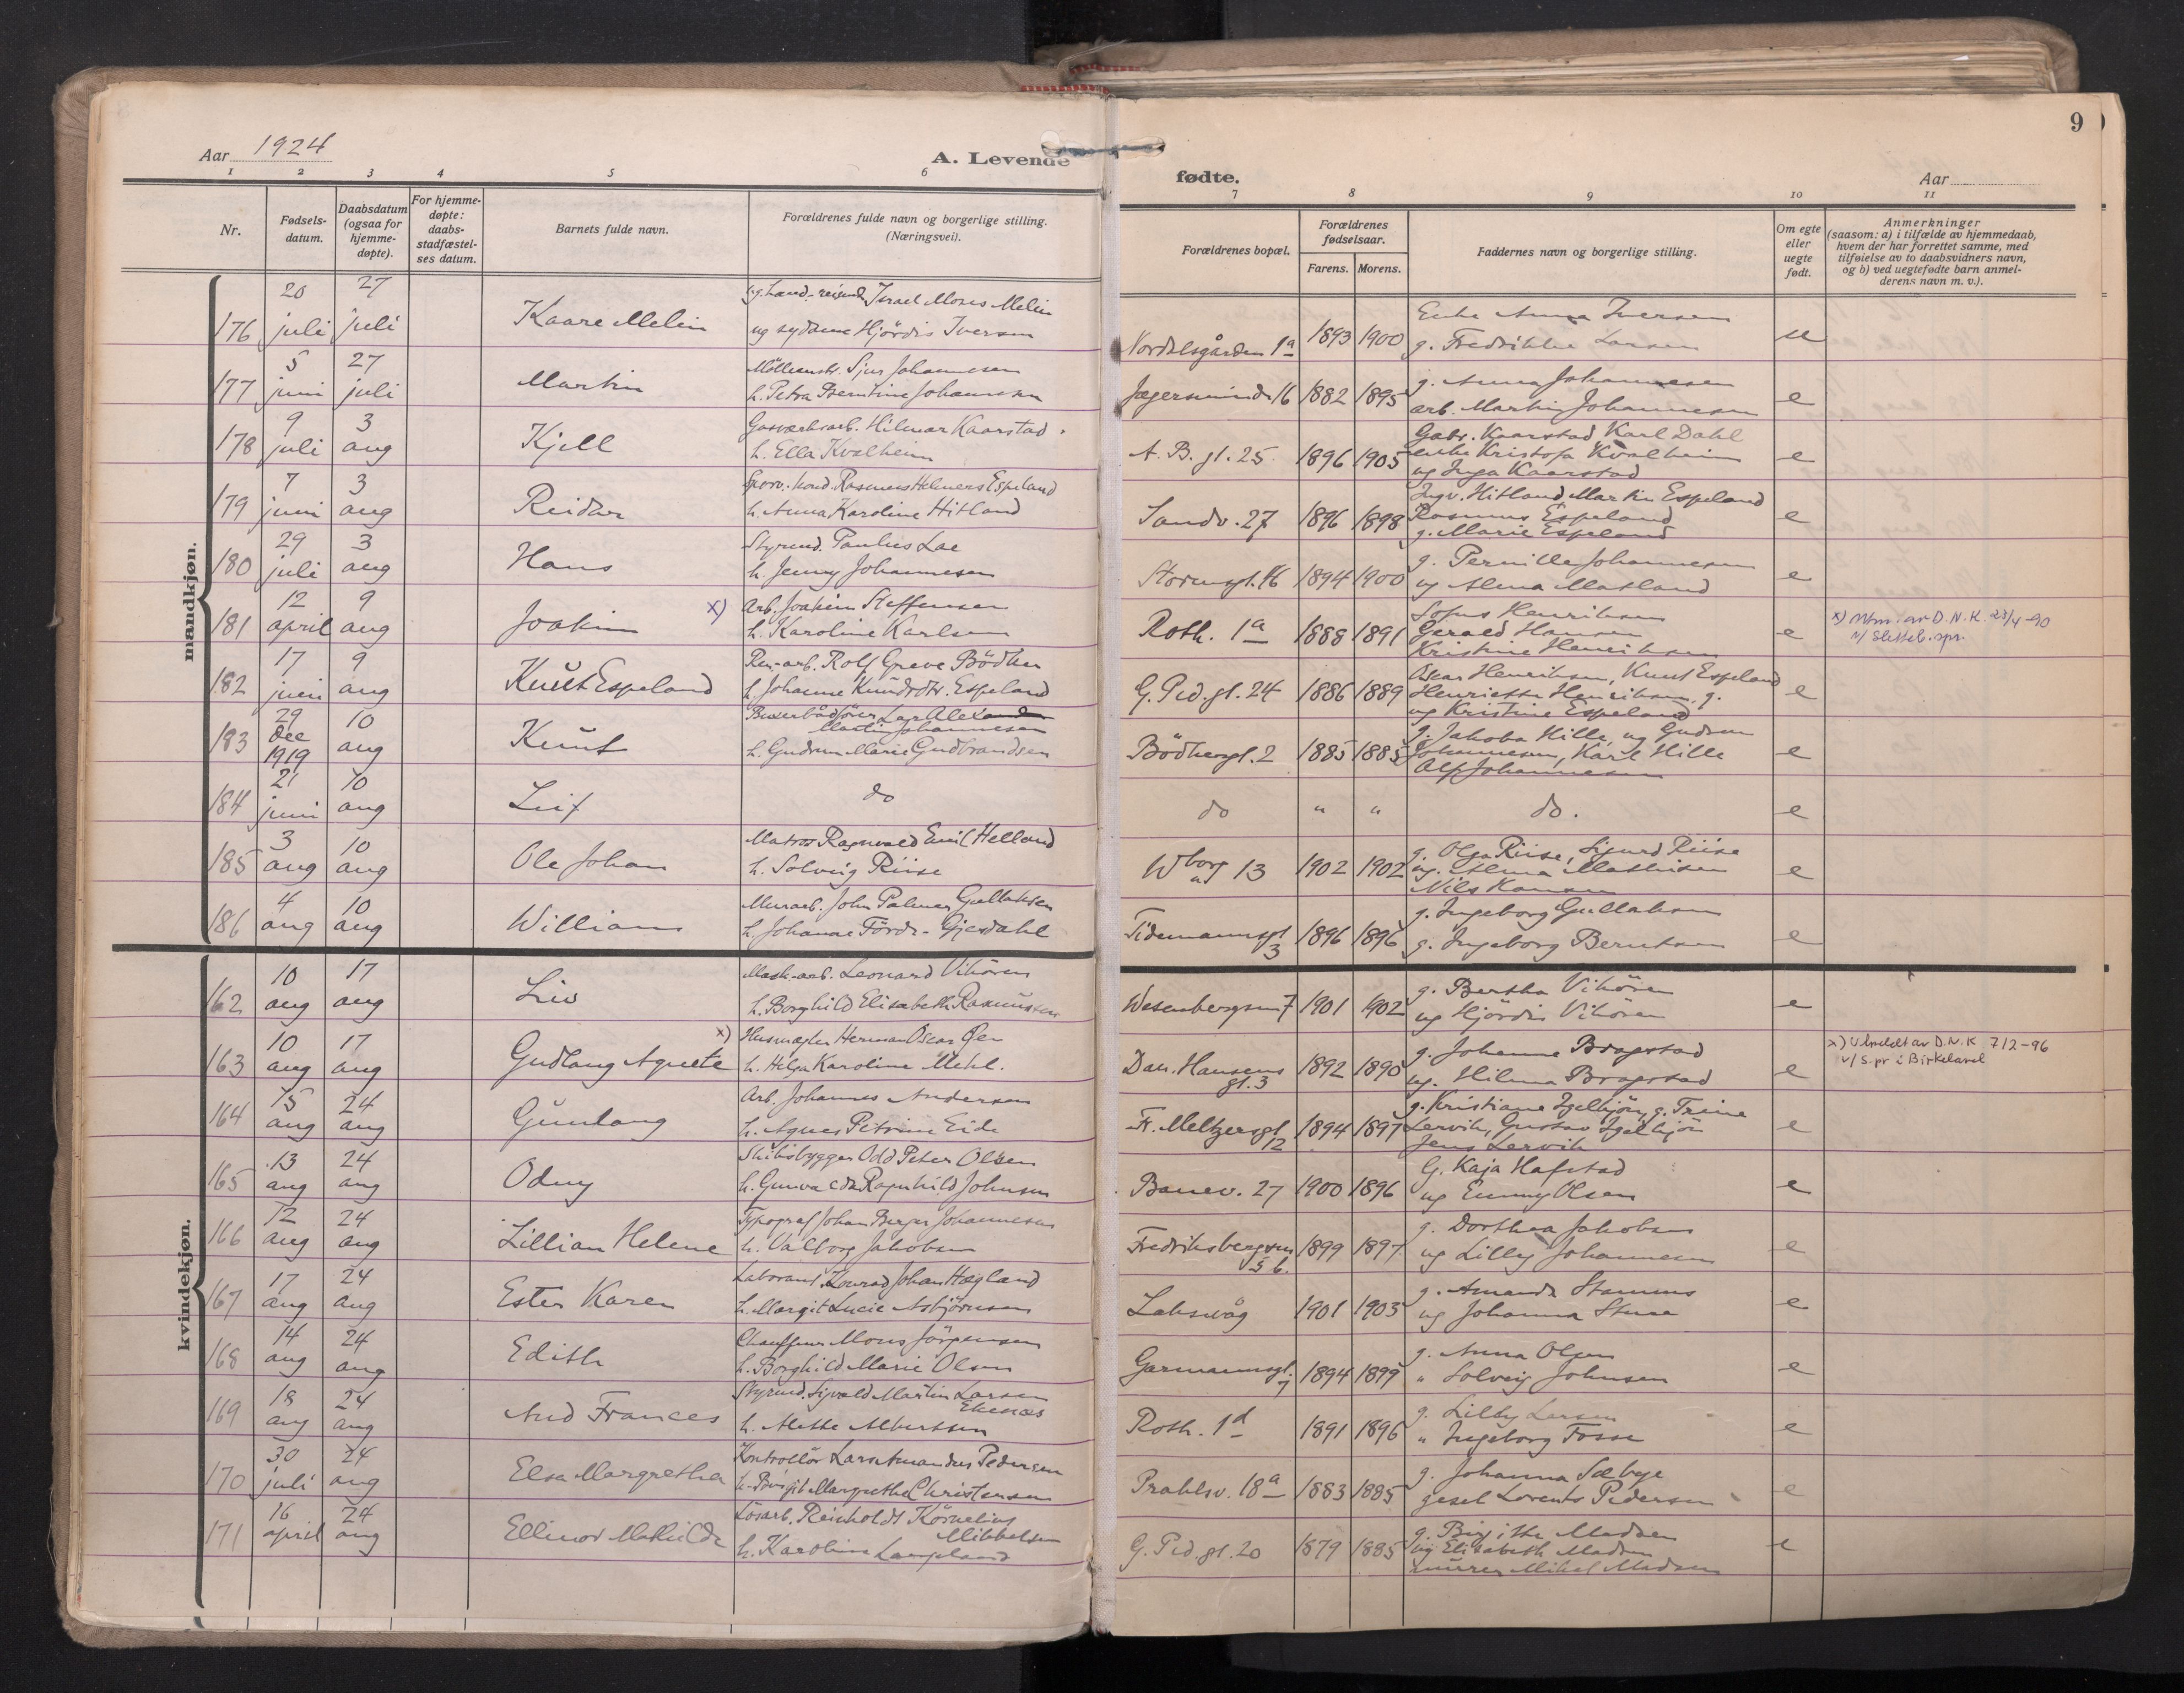 Aar 1924
A. Levende
fødte.
Aar
9
1 2 3 4 5 6 7 8 9 10 11
Nr.
Fødsels-
datum.
Daabsdatum
(ogsaa for
hjemme-
døpte).
For hjemme-
døpte:
daabs-
stadfæstel-
ses datum.
Barnets fulde navn.
Forældrenes fulde navn og borgerlige stilling.
(Næringsvei).
Forældrenes bopæl.
Forældrenes
fødselsaar.
Farens. Morens.
Faddernes navn og borgerlige stilling.
Om egte
eller
uegte
født.
Anmerkninger
(saasom: a) i tilfælde av hjemmedaab,
hvem der har forrettet samme, med
tilføielse av to daabsvidners navn,
og b) ved uegtefødte barn anmel-
derens navn m. v.).
mandkjøn.
176 20 juli 27 juli Kaare Melin
Israel Moses Melin
og sydame Hjördis Iversen
Nordalsgården 1a 1893 1900
Enke Anna Iversen
g. Fredrikke Larsen
u
177 5 juni 27 juli Martin
Sjur Johannesen
h. Petra Berntine Johannesen
16 1882 1895
g. Anna Johannesen
arb. Martin Johannesen
e
178 9 juli 3 aug Kjell
Gasværksarb. Hilmar Kaarstad
h. Ella Kvalheim
A. B. gt. 25 1896 1905
Gabr. Kaarstad Karl Dahl
enke Kristofa Kvalheim
ug Inga Kaarstad
e
179 7 juni 3 aug Reidar
Sporv. kond. Rasmus Helmers Espeland
h. Anna Karoline Hitland
Sandv. 27 1896 1898
Ingv. Hitland, Martin Espeland
Rasmus Espeland
g. Marie Espeland
e
180 29 juli 3 aug Hans
Styrmd. Paulus Lae
h. Jenny Johannesen
Stormsgt. 16 1894 1900
g. Pernille Johannesen
ug Alma Matland
e
181 12 april 9 aug Joakim
x) Arb. Joakim Steffensen
h. Karoline Karlsen
Roth. 1a 1888 1891
Sofus Henriksen
Gerald Hansen
Kristine Henriksen
e
x) Utm. av D.N.K. 23/4-90
v/ Sletteb. spr.
182 17 juni 9 aug Knut Espeland
Ren.-arb. Rolf Greve Bödker
h. Johanne Knudsdtr. Espeland
G. Ped. gt. 24 1886 1889
Oscar Henriksen, Knut Espeland
Henriette Henriksen, g.
ug Kristine Espeland
e
183 29 dec 1919 10 aug Knut
Martin Johannesen
h. Gudrun Marie Gudbrandsen
Bödkergt. 2 1885 1885
g. Jakoba Hille, ug Gudrun
Johannesen, Karl Hille
Alf Johannesen
e
184 21 juni 10 aug Leif
do
do " " do.
e
185 3 aug 10 aug Ole Johan
Matros Ragnvald Emil Helland
h. Solveig Riise
Wborg 13 1902 1902
g. Olga Riise, Sigurd Riise
ug. Alma Mathisen
Nils Hansen
e
186 4 aug 10 aug William
Murarb. John Palmer Gullaksen
h. Johanne Förde-Gjesdahl
Tidemannsgt 3 1896 1896
g. Ingeborg Gullaksen
g. Ingeborg Berntsen
e
kvindekjøn.
162 10 aug 17 aug Liv
Mask.-arb. Leonard Vihören
h. Borghild Elisabeth Rasmussen
Wesenbergsm 7 1901 1902
g. Bertha Vihören
ug Hjördis Vihören
e
163 10 aug 17 aug Gudlaug Agnete
x) Husmægler Herman Oscar Øen
h. Helga Karoline Mehl.
Dan. Hansens gt. 3 1892 1890
g. Johanne Bragstad
ug. Hilma Bragstad
e
x) Utmeldt av D.N.K. 7/2-96
v/ s.pr i Birkeland
164 15 aug 24 aug Gunlaug
Arb. Johannes Andersen
h. Agnes Petrine Eide
Fr. Meltzersgt 12 1894 1897
Lervik, Gustav
Jens Lervik
e
165 13 aug 24 aug Odny
Skibsbygger Odd Peter Olsen
h. Gunvalda Ragnhild Johnsen
Banev. 27 1900 1896
G. Kaja Hafstad
ug Emmy Olsen
e
166 12 aug 24 aug Lillian Helene
Typograf Johan Berger Johannesen
h. Valborg Jakobsen
Fredriksbergsm 5 b. 1899 1897
g. Dorthea Jakobsen
ug Lilly Johannesen
e
167 17 aug 24 aug Ester Karen
Laborant Konrad Johan Hægland
h. Margit Lucie Asbjörnsen
Laksevåg 1901 1903
g. Amanda Stammes
ug Johanna
e
168 14 aug 24 aug Edith
Chauffeur Mons Jörgensen
h. Borghild Marie Olsen
Garmannsgt. 7 1894 1899
g. Anna Olsen
" Solveig Johnsen
e
169 18 aug 24 aug Aud Frances
Styrmd. Sigvald Martin Larsen
Ekenæs
h. Alette Albertsen
Roth. 1d 1891 1896
g. Lilly Larsen
" Ingeborg Fosse
e
170 30 juli 24 aug Elsa Margretha
Kontrollör Lars Amandus Pedersen
h. Birgit Margrethe Christensen
Prahlsv. 18a 1883 1885
g. Johanna Sæbye
gesel Lorents Pedersen
e
171 16 april 24 aug Ellinor Mathilde
Lösarb. Reinholdt Kornelius
Mikkelsen
h. Karoline Langeland
G. Ped. gt. 20 1879 1885
g. Birgitte Madsen
ug Elisabeth Madsen
murer Mikal Madsen
e